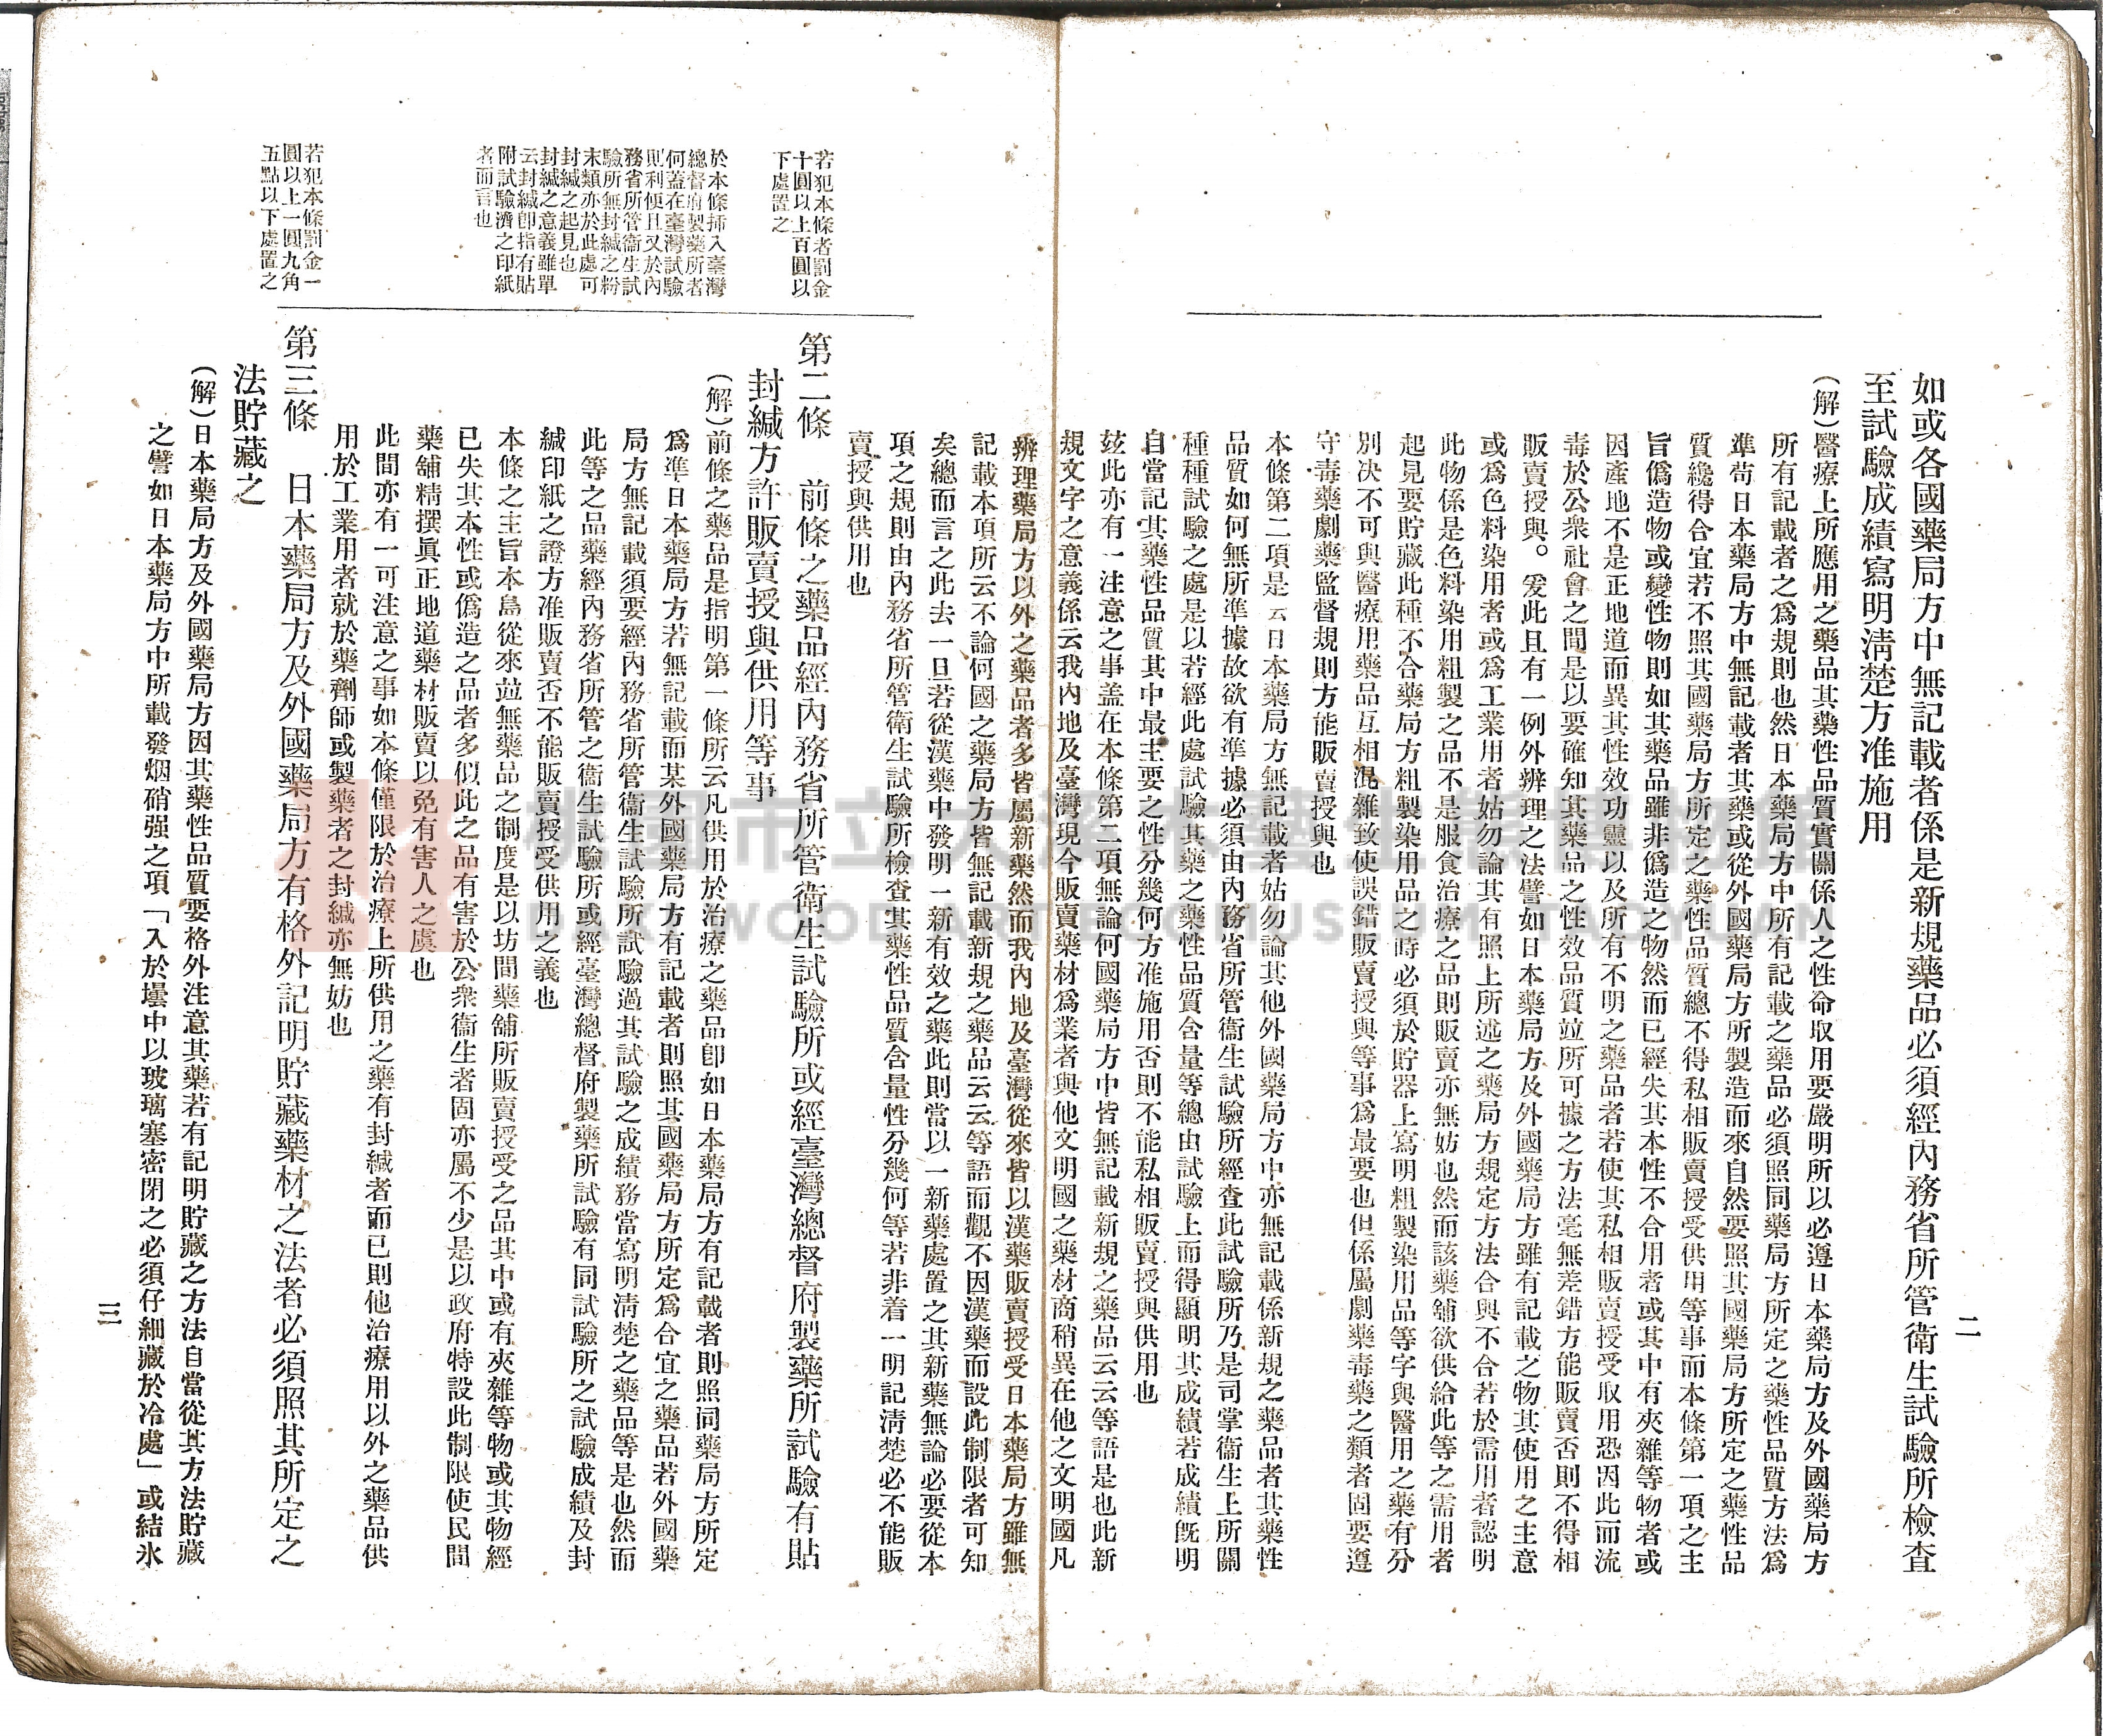 二
如或各國藥局方中無記載者係是新規藥品必須經內務省所管衛生試驗所檢查
至試驗成績寫明淸楚方准施用
(解)醫療上所應用之藥品其藥性品質實關係人之性命取用要嚴明所以必遵日本藥局方及外國藥局方
所有記載者之爲規則也然日本藥局方中所有記載之藥品必須照同藥局方所定之藥性品質方法爲
準苟日本藥局方中無記載者其藥或從外國藥局方所製造而來自然要照其國藥局方所定之藥性品
質纔得合宜若不照其國藥局方所定之藥性品質總不得私相販賣授受供用等事而本條第一項之主
旨僞造物或變性物則如其藥品雖非僞造之物然而已經失其本性不合用者或其中有夾雜等物者或
因產地不是正地道而異其性效功靈以及所有不明之藥品者若使其私相販賣授受取用恐因此而流
毒於公衆社會之間是以要確知其藥品之性效品質竝所可據之方法毫無差錯方能販賣否則不得相
販賣授與。爰此且有一例外辨理之法譬如日本藥局方及外國藥局方雖有記載之物其使用之主意
或爲色料染用者或爲工業用者姑勿論其有照上所述之藥局方規定方法合與不合若於需用者認明
此物係是色料染用粗製之品不是服食治療之品則販賣亦無妨也然而該藥舖欲供給此等之需用者
起見要貯藏此種不合藥局方粗製染用品之時必須於貯器上寫明粗製染用品等字與醫用之藥有分
別决不可與醫療用藥品互相混雜致使誤錯販賣授與等事爲最要也但係屬劇藥毒藥之類者固要遵
守毒藥劇藥監督規則方能販賣授與也
本條第二項是云日本藥局方無記載者姑勿論其他外國藥局方中亦無記載係新規之藥品者其藥性
品質如何無所準據故欲有準據必須由內務省所管衛生試驗所經查此試驗所乃是司掌衛生上所關
種種試驗之處是以若經此處試驗其藥之藥性品質含量等總由試驗上而得顯明其成績若成績旣明
自當記其藥性品質其中最主要之性分幾何方准施用否則不能私相販賣授與供用也
玆此亦有一注意之事盖在本條第二項無論何國藥局方中皆無記載新規之藥品云云等語是也此新
規文字之意義係云我內地及臺灣現今販賣藥材爲業者與他文明國之藥材商稍異在他之文明國凡
辨理藥局方以外之藥品者多皆屬新藥然而我內地及臺灣從來皆以漢藥販賣授受日本藥局方雖無
記載本項所云不論何國之藥局方皆無記載新規之藥品云云等語而觀不因漢藥而設此制限者可知
矣總而言之此去一旦若從漢藥中發明一新有效之藥此則當以一新藥處置之其新藥無論必要從本
項之規則由內務省所管衛生試驗所檢查其藥性品質含量性分幾何等若非着一明記淸楚必不能販
賣授與供用也
若犯本條者罰金
十圓以上百圓以
下處置之
第二條　前條之藥品經內務省所管衛生試驗所或經臺灣總督府製藥所試驗有貼
封緘方許販賣授與供用等事
於本條揷入臺灣
總督府製藥所者
何蓋在臺灣試驗
則利便且又於內
務省所管衞生試
驗所無封緘之粉
末類亦於此處可
封緘之起見也
封緘之意義雖單
云封緘卽指有貼
附試驗濟之印紙
者而言也
(解)前條之藥品是指明第一條所云凡供用於治療之藥品卽如日本藥局方有記載者則照同藥局方所定
爲準日本藥局方若無記載而某外國藥局方有記載者則照其國藥局方所定爲合宜之藥品若外國藥
局方無記載須要經內務省所管衞生試驗所試驗過其試驗之成績務當寫明淸楚之藥品等是也然而
此等之品藥經內務省所管之衞生試驗所或經臺灣總督府製藥所試驗有同試驗所之試驗成績及封
緘印紙之證方准販賣否不能販賣授受供用之義也
本條之主旨本島從來竝無藥品之制度是以坊間藥舖所販賣授受之品其中或有夾雜等物或其物經
已失其本性或僞造之品者多似此之品有害於公衆衞生者固亦屬不少是以政府特設此制限使民間
藥舖精撰眞正地道藥材販賣以免有害人之虞也
此間亦有一可注意之事如本條僅限於治療上所供用之藥有封緘者而已則他治療用以外之藥品供
用於工業用者就於藥劑師或製藥者之封緘亦無妨也
若犯本條罰金一
圓以上一圓九角
五點以下處置之
第三條　日本藥局方及外國藥局方有格外記明貯藏藥材之法者必須照其所定之
法貯藏之
(解)日本藥局方及外國藥局方因其藥性品質要格外注意其藥若有記明貯藏之方法自當從其方法貯藏
之譬如日本藥局方中所載發烟硝强之項「入於壜中以玻璃塞密閉之必須仔細藏於冷處」或結氷
三
桃園市立大溪木藝生態博物館
DAXI WOOD ART ECOMUSEUM, TAOYUAN